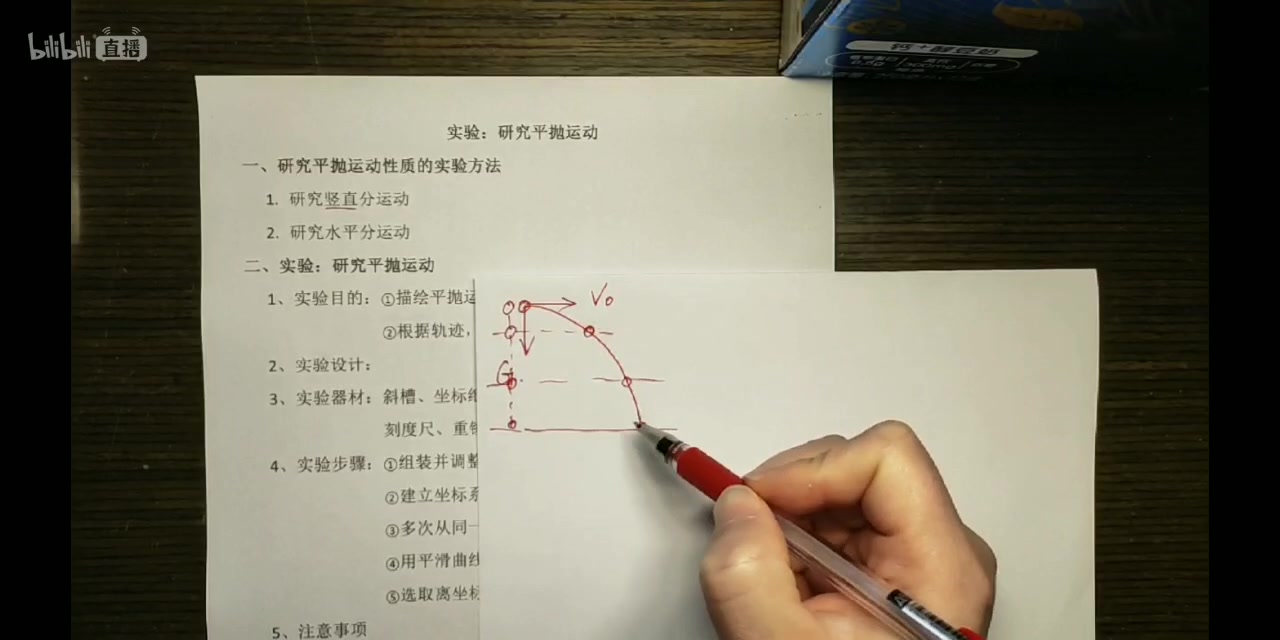 bilibili 直播
钙+醇豆奶
实验：研究平抛运动
一、研究平抛运动性质的实验方法
1. 研究竖直分运动
2. 研究水平分运动
二、实验：研究平抛运动
1、实验目的：①描绘平抛运
②根据轨迹，
2、实验设计：
3、实验器材：斜槽、坐标纸
刻度尺、重锤
4、实验步骤：①组装并调整
②建立坐标系
③多次从同一
④用平滑曲线
⑤选取离坐标
5、注意事项
V₀
G